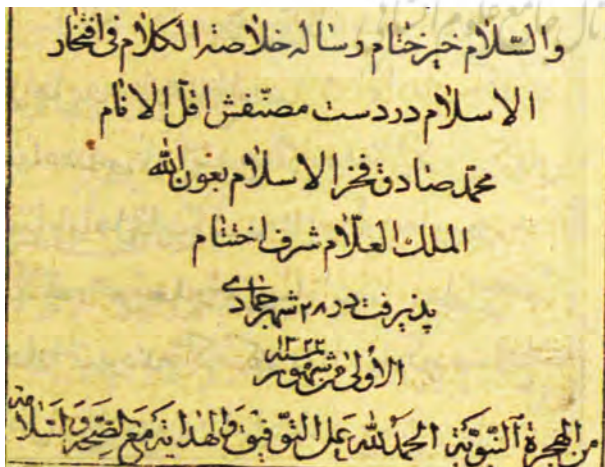 والسّلام خیر ختام رساله خلاصة الکلام فی افتخار
الاسلام در دست مصنّفش اقلّ الانام
محمّد صادق فخر الاسلام بعون الله
الملک العلّام شرف اختتام
پذیرفت در ٢٨ شهر جمادی
الأولی من شهور سنه ١٣٢٣
من الهجرة النّبویّة الحمد لله علی التوفیق والهدایة مع الصّحة والسّلامة